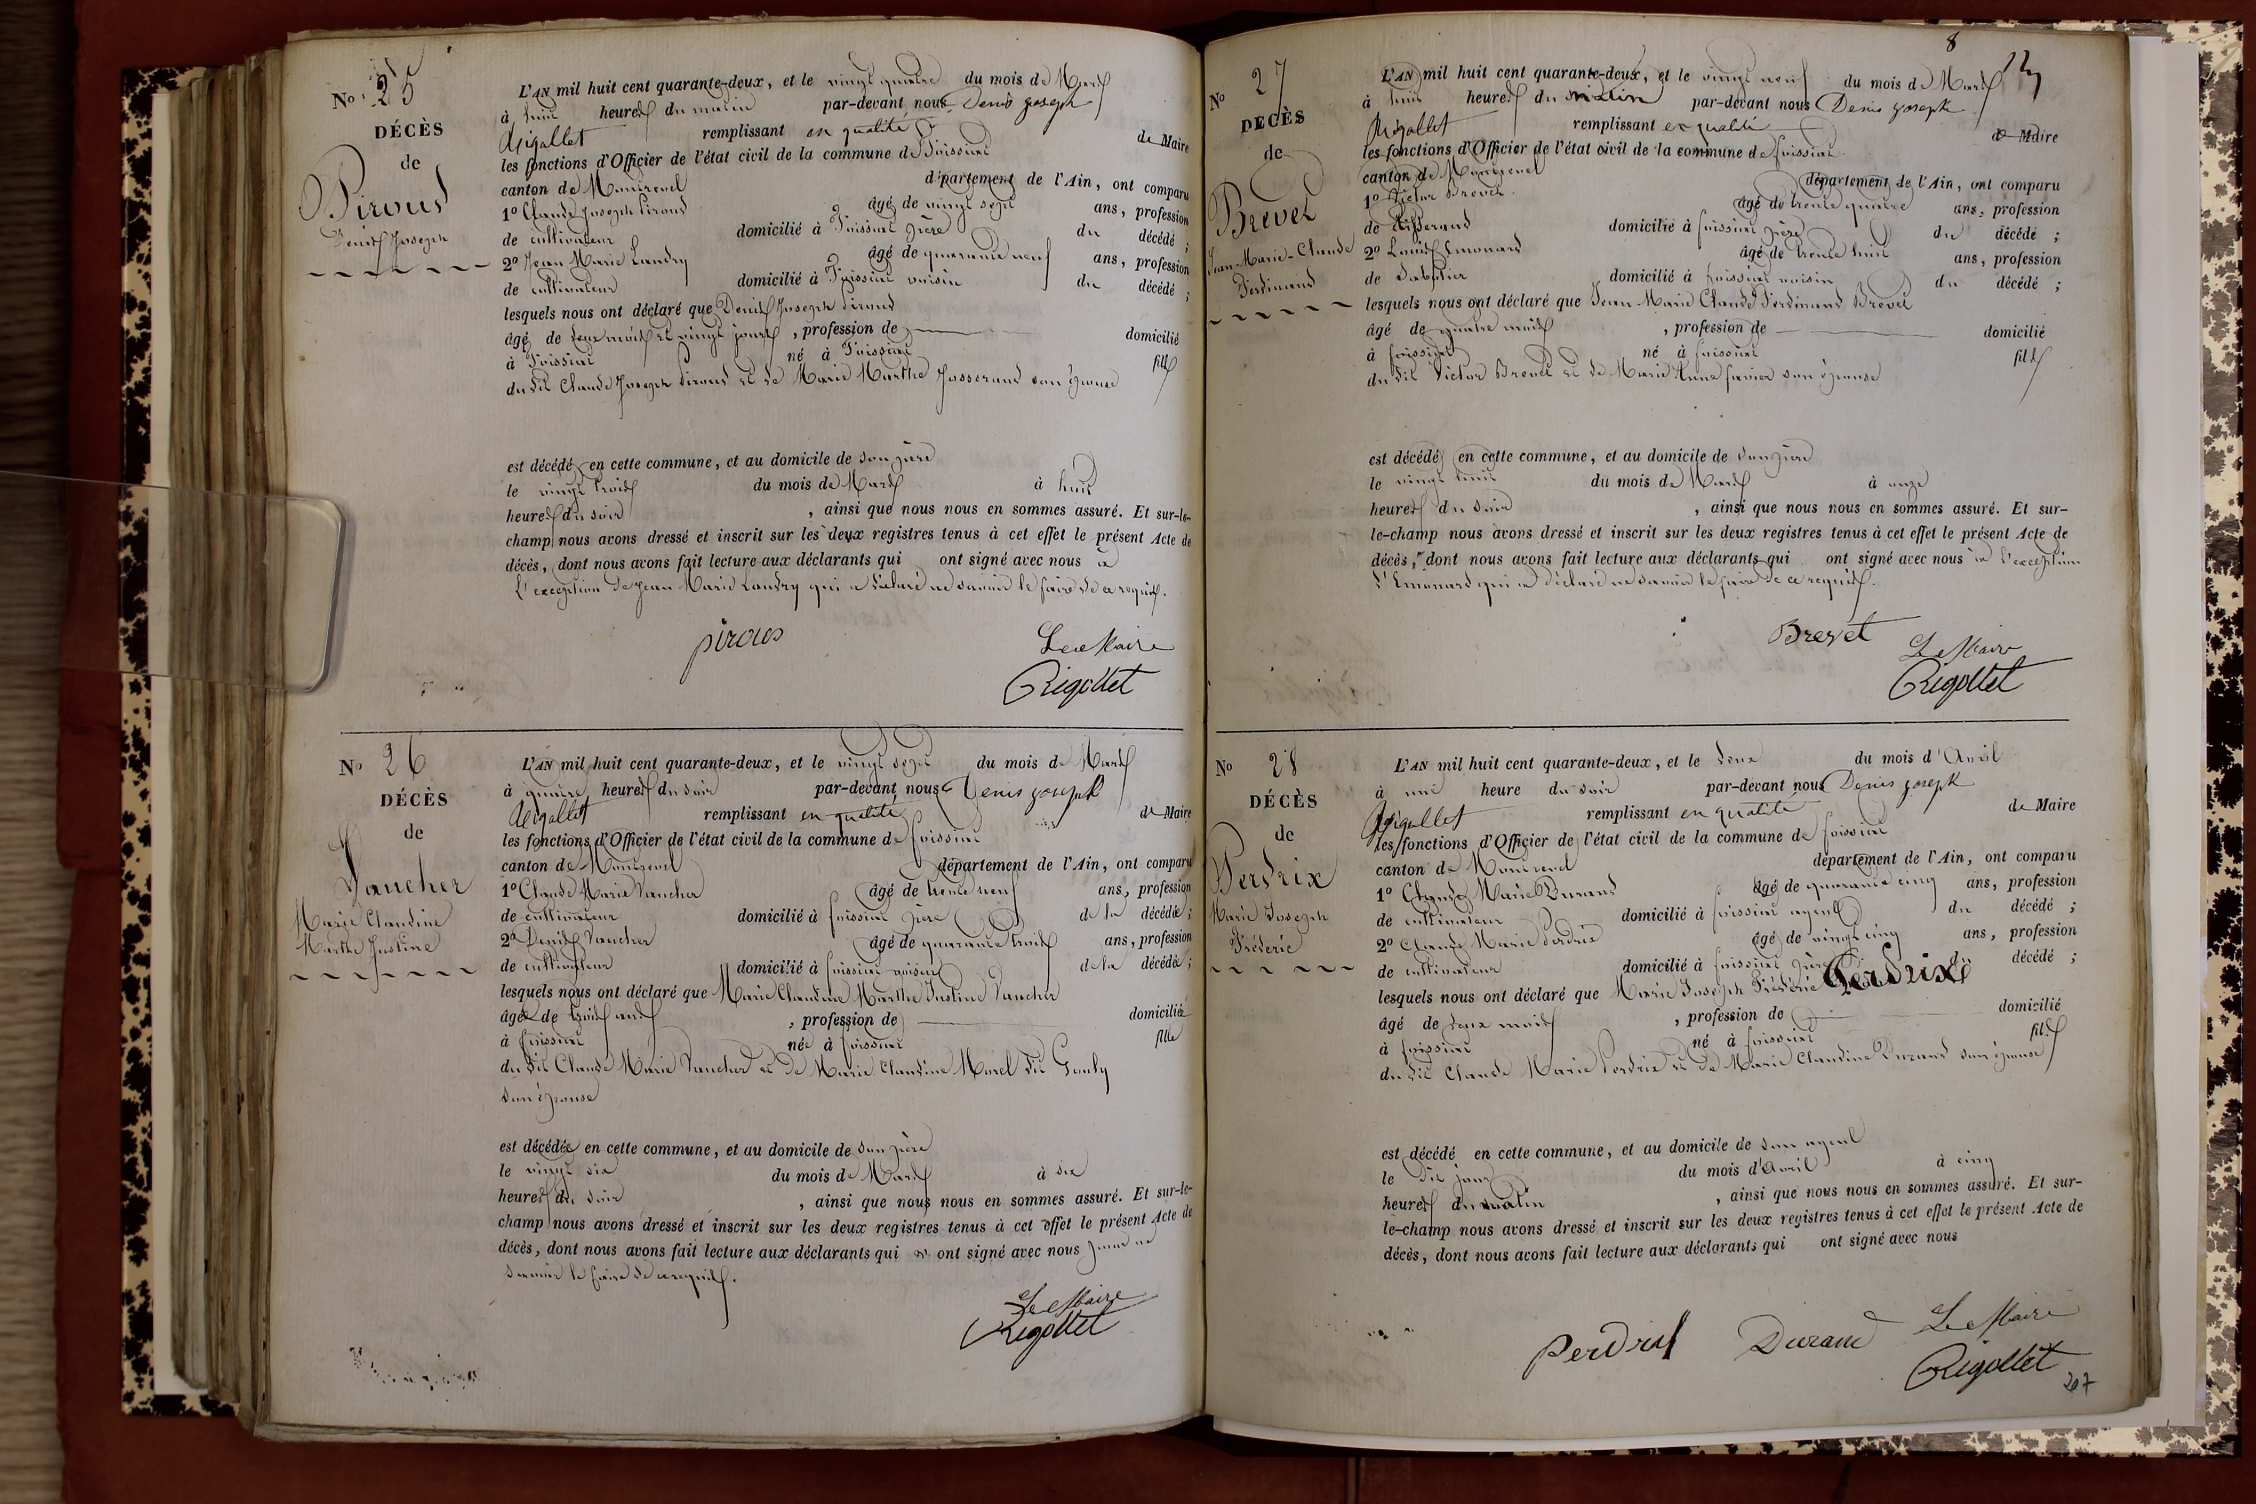 No 25
DÉCÈS
de
Pirous
Denis Joseph
L'AN mil huit cent quarante-deux, et le vingt quatre du mois de Mars
à huit heures du matin par-devant nous Denis joseph
Rigollet remplissant en qualité de Maire
les fonctions d'Officier de l'état civil de la commune de Foissiat
canton de Montrevel département de l'Ain, ont comparu
1o Claude Joseph Pirous âgé de vingt sept ans, profession
de cultivateur domicilié à Foissiat père du décédé ;
2o Jean Marie Landry âgé de quarante neuf ans, profession
de cultivateur domicilié à Foissiat voisin du décédé ;
lesquels nous ont déclaré que Denis Joseph Pirous
âgé de deux mois et vingt jours, profession de domicilié
à Foissiat né à Foissiat fils
du dit Claude Joseph Pirous et de Marie Marthe Josserand son épouse
est décédé en cette commune, et au domicile de son père
le vingt trois du mois de Mars à huit
heures du soir, ainsi que nous nous en sommes assuré. Et sur-le-
champ nous avons dressé et inscrit sur les deux registres tenus à cet effet le présent Acte de
décès, dont nous avons fait lecture aux déclarants qui ont signé avec nous à
l'exception de Jean Marie Landry qui a déclaré ne savoir le faire de ce requis.
pirous
Le Maire
Rigollet
No 26
DÉCÈS
de
Vaucher
Marie Claudine
Marthe Justine
L'AN mil huit cent quarante-deux, et le vingt sept du mois de Mars
à quatre heures du soir par-devant nous Denis joseph
Rigollet remplissant en qualité de Maire
les fonctions d'Officier de l'état civil de la commune de foissiat
canton de Montrevel département de l'Ain, ont comparu
1o Claude Marie Vaucher âgé de trente neuf ans, profession
de cultivateur domicilié à foissiat père de la décédée ;
2o Denis Vaucher âgé de quarante trois ans, profession
de cultivateur domicilié à foissiat voisin de la décédée ;
lesquels nous ont déclaré que Marie Claudine Marthe Justine Vaucher
âgée de trois ans, profession de domiciliée
à foissiat née à foissiat fille
du dit Claude Marie Vaucher et de Marie Claudine Morel dit Gouly
son épouse
est décédée en cette commune, et au domicile de son père
le vingt six du mois de Mars à six
heures du soir, ainsi que nous nous en sommes assuré. Et sur-le-
champ nous avons dressé et inscrit sur les deux registres tenus à cet effet le présent Acte de
décès, dont nous avons fait lecture aux déclarants qui n' ont signé avec nous pour ne
savoir le faire de ce requis.
Le Maire
Rigollet
8
No 27
DÉCÈS
de
Brevet
Jean-Marie-Claude
Ferdinand
L'AN mil huit cent quarante-deux, et le vingt neuf du mois de Mars
à huit heures du matin par-devant nous Denis joseph
Rigollet remplissant en qualité de Maire
les fonctions d'Officier de l'état civil de la commune de foissiat
canton de Montrevel département de l'Ain, ont comparu
1o Victor Brevet âgé de trente quatre ans, profession
de tisserand domicilié à foissiat père du décédé ;
2o Louis Emonard âgé de trente huit ans, profession
de sabotier domicilié à foissiat voisin du décédé ;
lesquels nous ont déclaré que Jean Marie Claude Ferdinand Brevet
âgé de quatre mois, profession de domicilié
à foissiat né à foissiat fils
du dit Victor Brevet et de Marie Anne favier son épouse
est décédé en cette commune, et au domicile de son père
le vingt huit du mois de Mars à onze
heures du soir, ainsi que nous nous en sommes assuré. Et sur-
le-champ nous avons dressé et inscrit sur les deux registres tenus à cet effet le présent Acte de
décès, dont nous avons fait lecture aux déclarants qui ont signé avec nous à l'exception
d'Emonard qui a déclaré ne savoir le faire de ce requis.
Brevet
Le Maire
Rigollet
No 28
DÉCÈS
de
Perdrix
Marie Joseph
Fréderic
L'AN mil huit cent quarante-deux, et le deux du mois d'Avril
à une heure du soir par-devant nous Denis joseph
Rigollet remplissant en qualité de Maire
les fonctions d'Officier de l'état civil de la commune de foissiat
canton de Montrevel département de l'Ain, ont comparu
1o Claude Marie Durand âgé de quarante cinq ans, profession
de cultivateur domicilié à foissiat ayeul du décédé ;
2o Claude Marie Perdrix âgé de vingt cinq ans, profession
de cultivateur domicilié à foissiat père du décédé ;
lesquels nous ont déclaré que Marie Joseph Fréderic Perdrix
âgé de deux mois, profession de domicilié
à foissiat né à foissiat fils
du dit Claude Marie Perdrix et de Marie Claudine Durand son épouse
est décédé en cette commune, et au domicile de son ayeul
le dit jour du mois d'Avril à cinq
heures du matin, ainsi que nous nous en sommes assuré. Et sur-
le-champ nous avons dressé et inscrit sur les deux registres tenus à cet effet le présent Acte de
décès, dont nous avons fait lecture aux déclarants qui ont signé avec nous
Perdrix
Durand
Le Maire
Rigollet
207